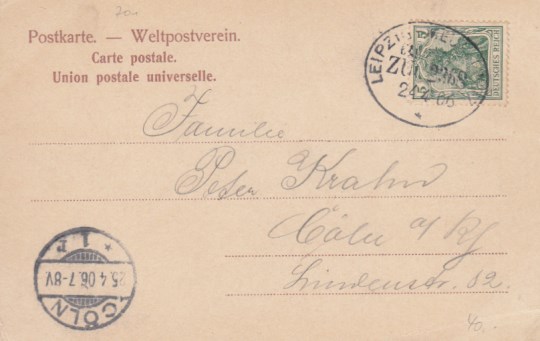 20.-
Postkarte. — Weltpostverein.
Carte postale.
Union postale universelle.
LEIPZIG
ZUG
DEUTSCHES REICH
Familie
Peter Krahn
Cöln a/Rh
Lindenstr. 32.
CÖLN
25.4.06.7-8V.
* 1 r
40.-